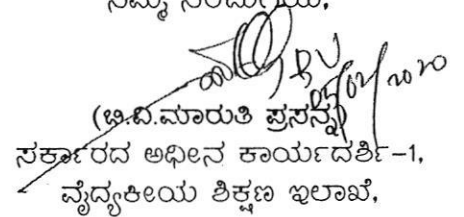 ನಿಮ್ಮ ನಂಬುಗೆಯ,
(ಬಿ.ವಿ.ಮಾರುತಿ ಪ್ರಸನ್ನ)
ಸರ್ಕಾರದ ಅಧೀನ ಕಾರ್ಯದರ್ಶಿ-1,
ವೈದ್ಯಕೀಯ ಶಿಕ್ಷಣ ಇಲಾಖೆ,